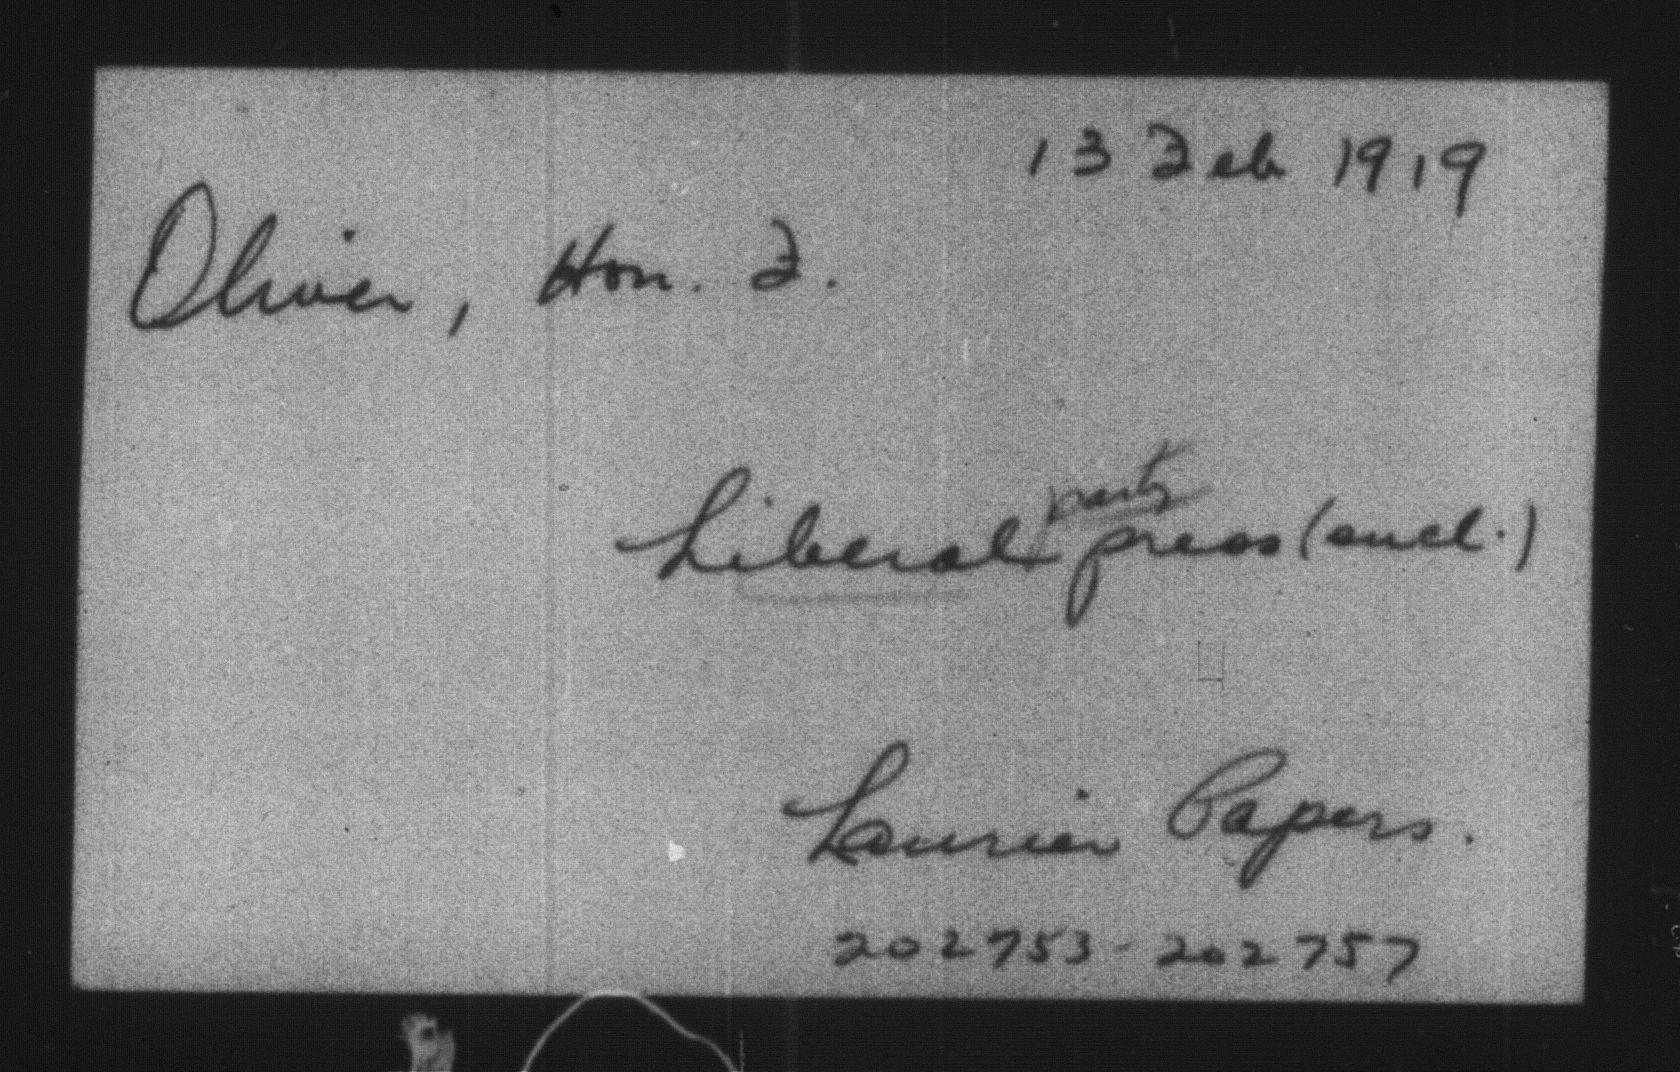 13 Feb 1919
Oliver, Hon. F.
Liberal party press (encl.)
Laurier Papers.
202753-202757